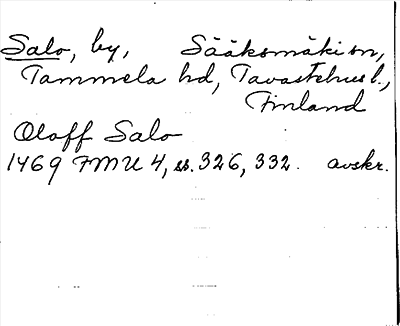 Salo, by, Sääksmäki sn,
Tammela hd, Tavastehus l.,
Finland
Olaff Salo
1469 FMU 4, ss. 326, 332. avskr.